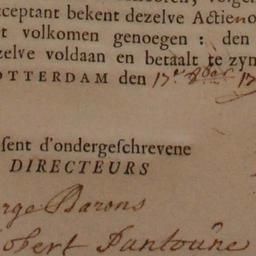 cceptant bekent dezelve Actien o
t volkomen genoegen: den
zelve voldaan en betaalt te zyn
OTTERDAM den 17e 8ber 17
sent d'ondergeschrevene
DIRECTEURS
rge Barons
obert Santoûne